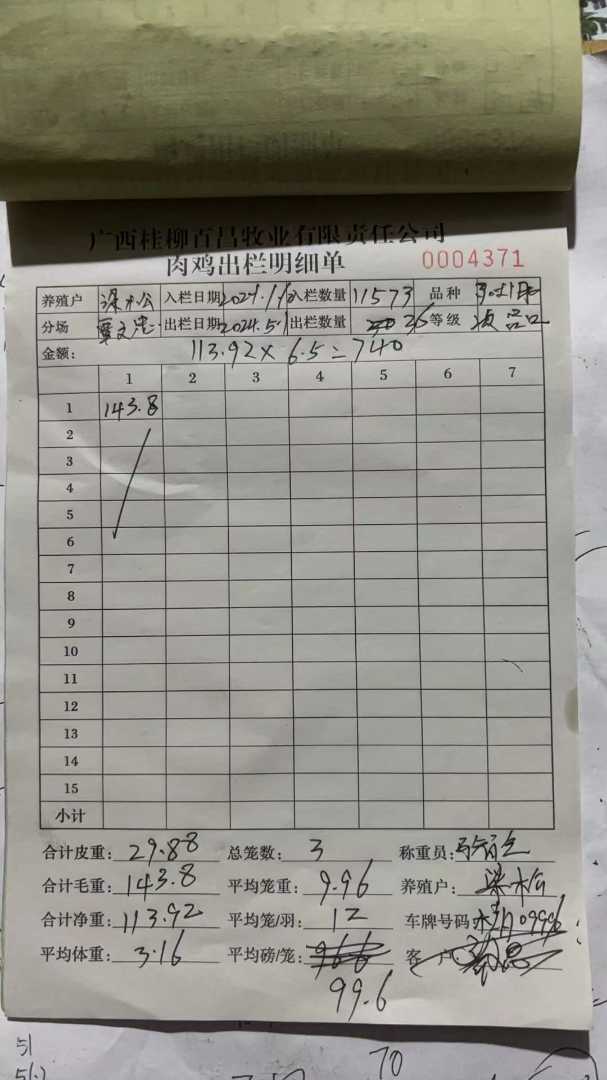 广西桂柳百昌牧业有限责任公司
肉鸡出栏明细单 0004371
养殖户 梁木公 入栏日期 入栏数量 11573 品种
分场 出栏日期 2024.5.1 出栏数量 36 等级 次品
金额: 113.92×6.5=740
1 2 3 4 5 6 7
1 143.8
2
3
4
5
6
7
8
9
10
11
12
13
14
15
小计
合计皮重: 29.88 总笼数: 3 称重员:
合计毛重: 143.8 平均笼重: 9.96 养殖户: 梁木公
合计净重: 113.92 平均笼/羽: 12 车牌号码: 09996
平均体重: 3.16 平均磅/笼: 客户
99.6
70